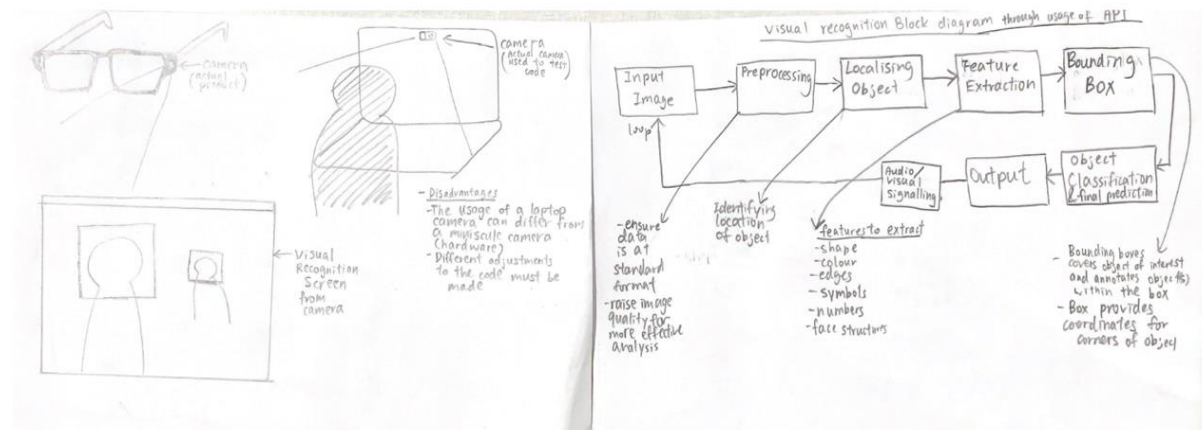 camera
(actual
product)
camera
(actual camera
used to test
code)
- Disadvantages
- The usage of a laptop
camera can differ from
a miniscule camera
(hardware)
- Different adjustments
to the code must be
made
Visual
Recognition
Screen
from
camera
Visual recognition Block diagram through usage of API
Input
Image
Preprocessing
Localising
Object
Feature
Extraction
Bounding
Box
loop
Audio/
visual
signalling
Output
Object
Classification
& final prediction
- ensure
data
is at
standard
format
- raise image
quality for
more effective
analysis
Identifying
location
of object
features to extract
- shape
- colour
- edges
- symbols
- numbers
- face structures
- Bounding boxes
covers object of interest
and annotates object(s)
within the box
- Box provides
coordinates for
corners of object